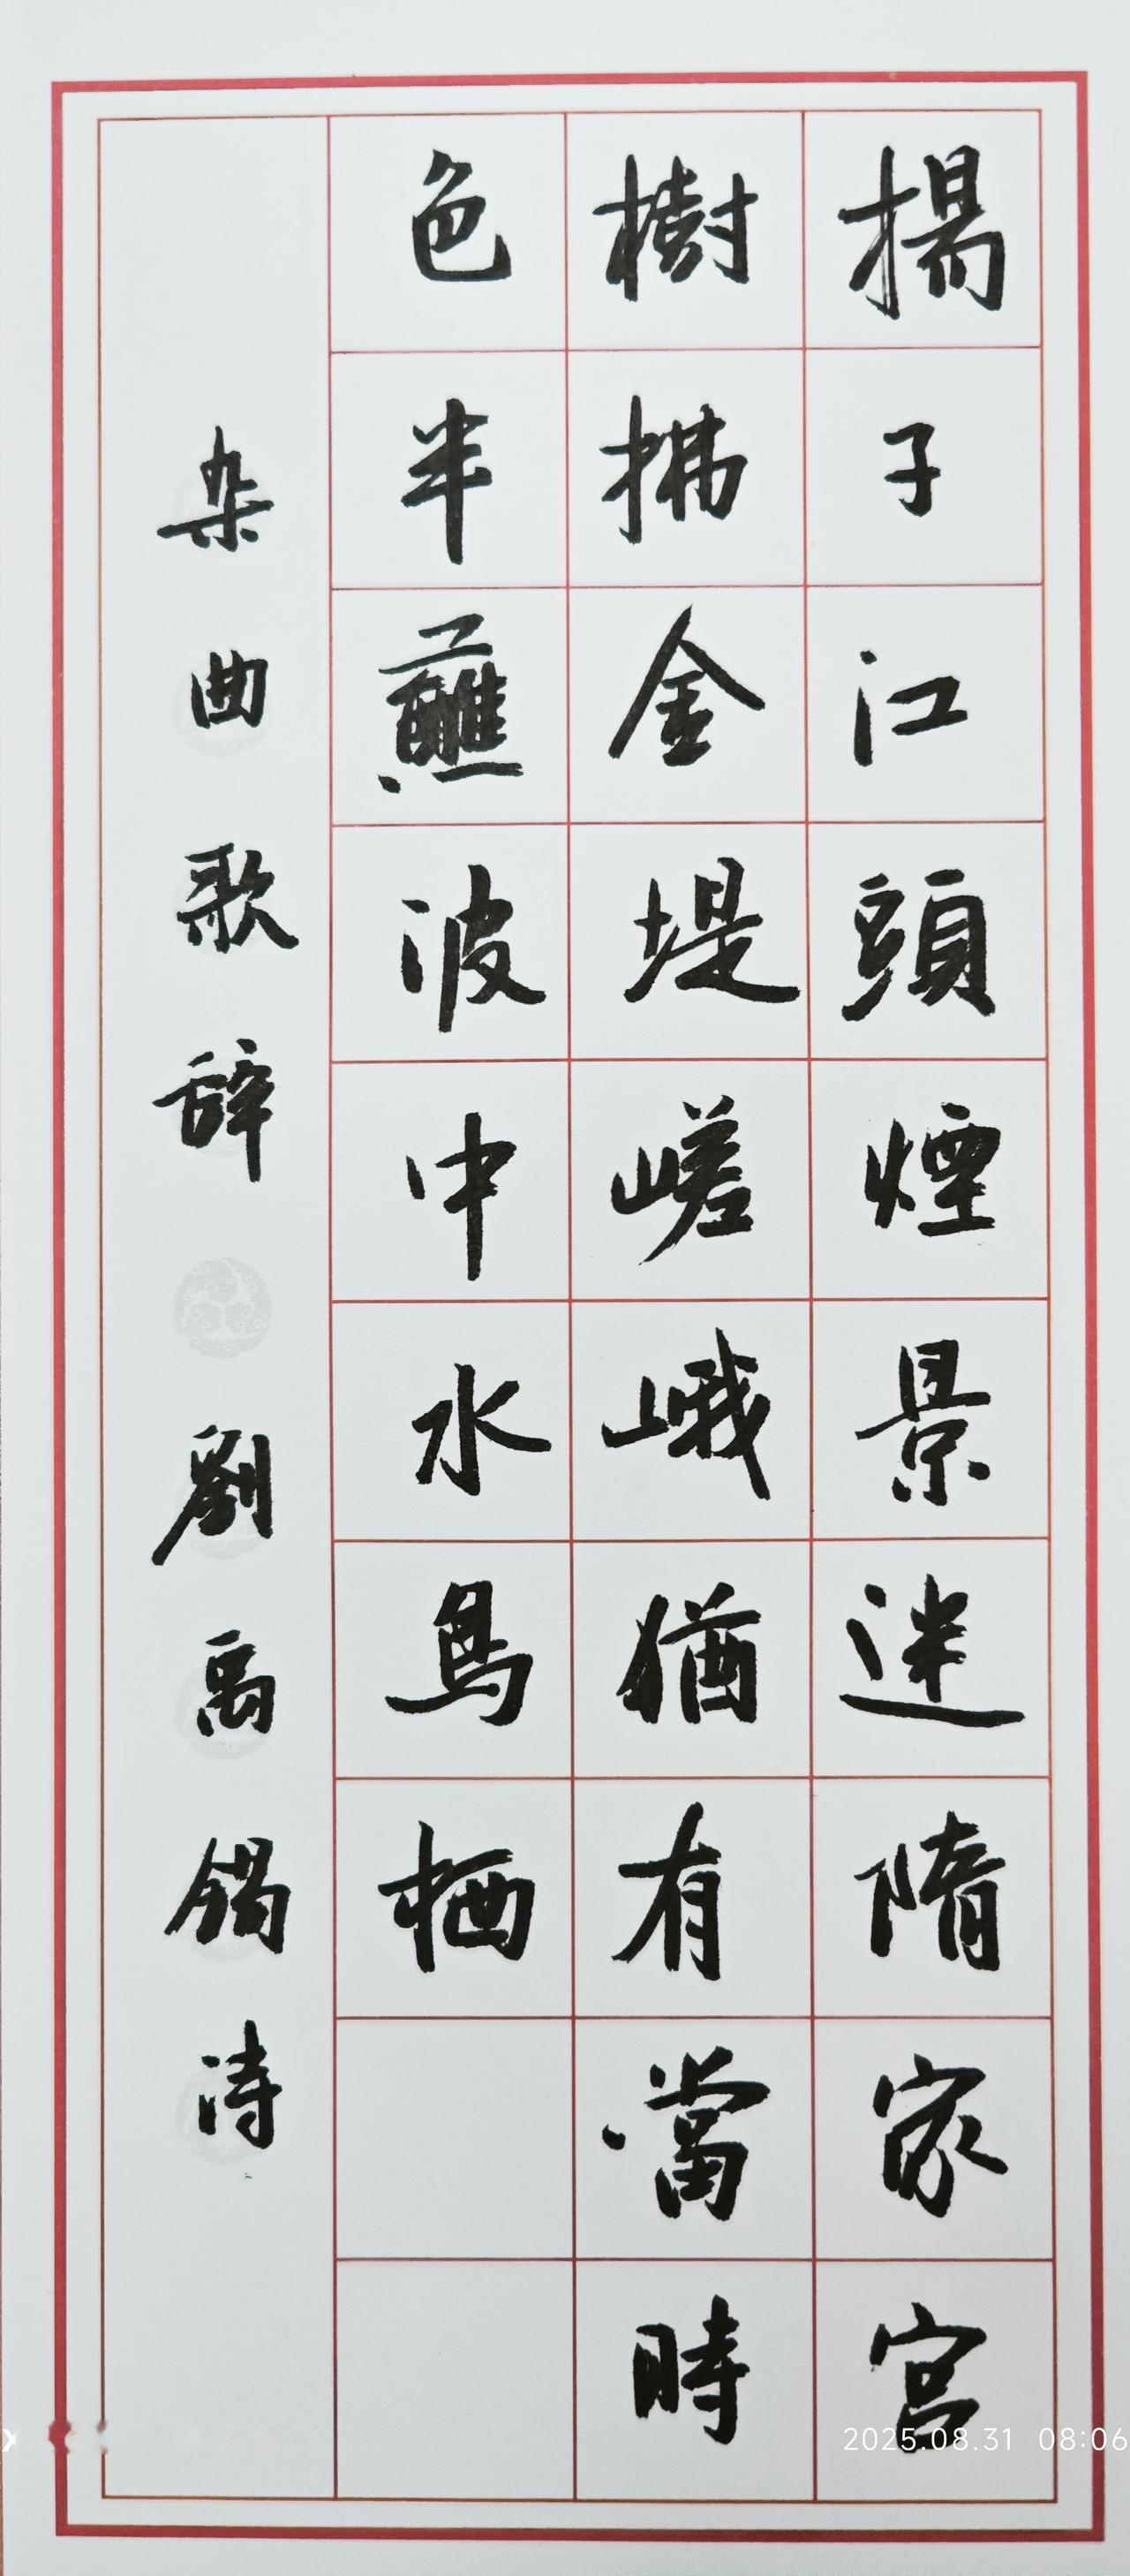 揚子江頭煙景迷隋家宮
樹拂金堤嵯峨猶有當時
色半蘸波中水鳥栖
杂曲歌辞 劉禹錫诗
2025.08.31 08:06